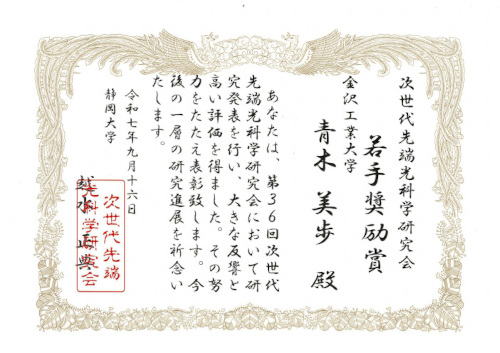 次世代先端光科学研究会
若手奨励賞
金沢工業大学
青木 美歩 殿
あなたは、第36回次世代
先端光科学研究会において研
究発表を行い、大きな反響と
高い評価を得ました。その努
力をたたえ表彰致します。今
後の一層の研究進展を祈念い
たします。
令和七年九月十六日
静岡大学
越水 正典
次世代先端
光科学研究会